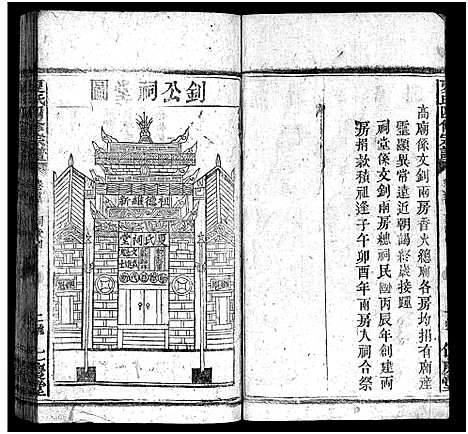 高廟係文釗兩房香火總廟各房均捐有廟產
靈顯異常遠近朝謁終歲接踵
祠堂係文釗兩房總祠民國丙辰年創建兩
房捐款積祖逢子午卯酉年兩房入祠合祭
釗公祠堂圖
祖德維新
夏氏祠堂
氏四修宗譜